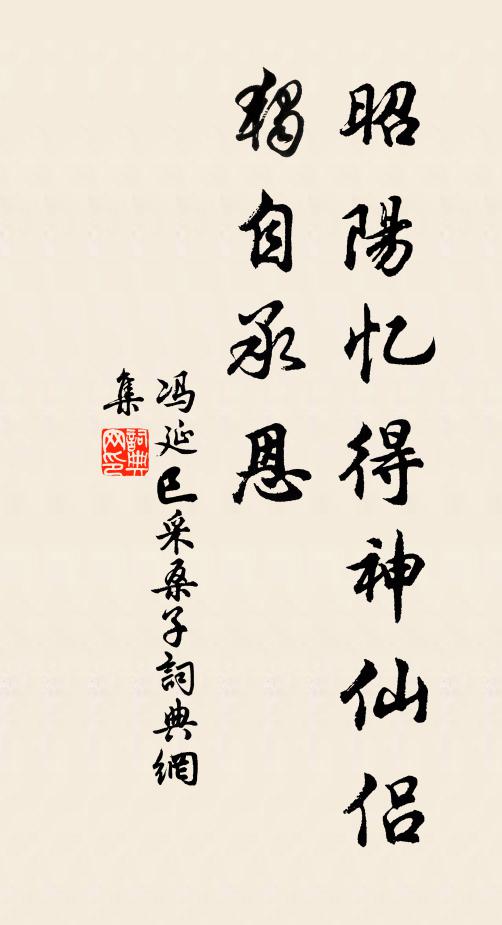 昭陽忆得神仙侣
獨自承恩
冯延巳采桑子詞典網
集
詞典
网印